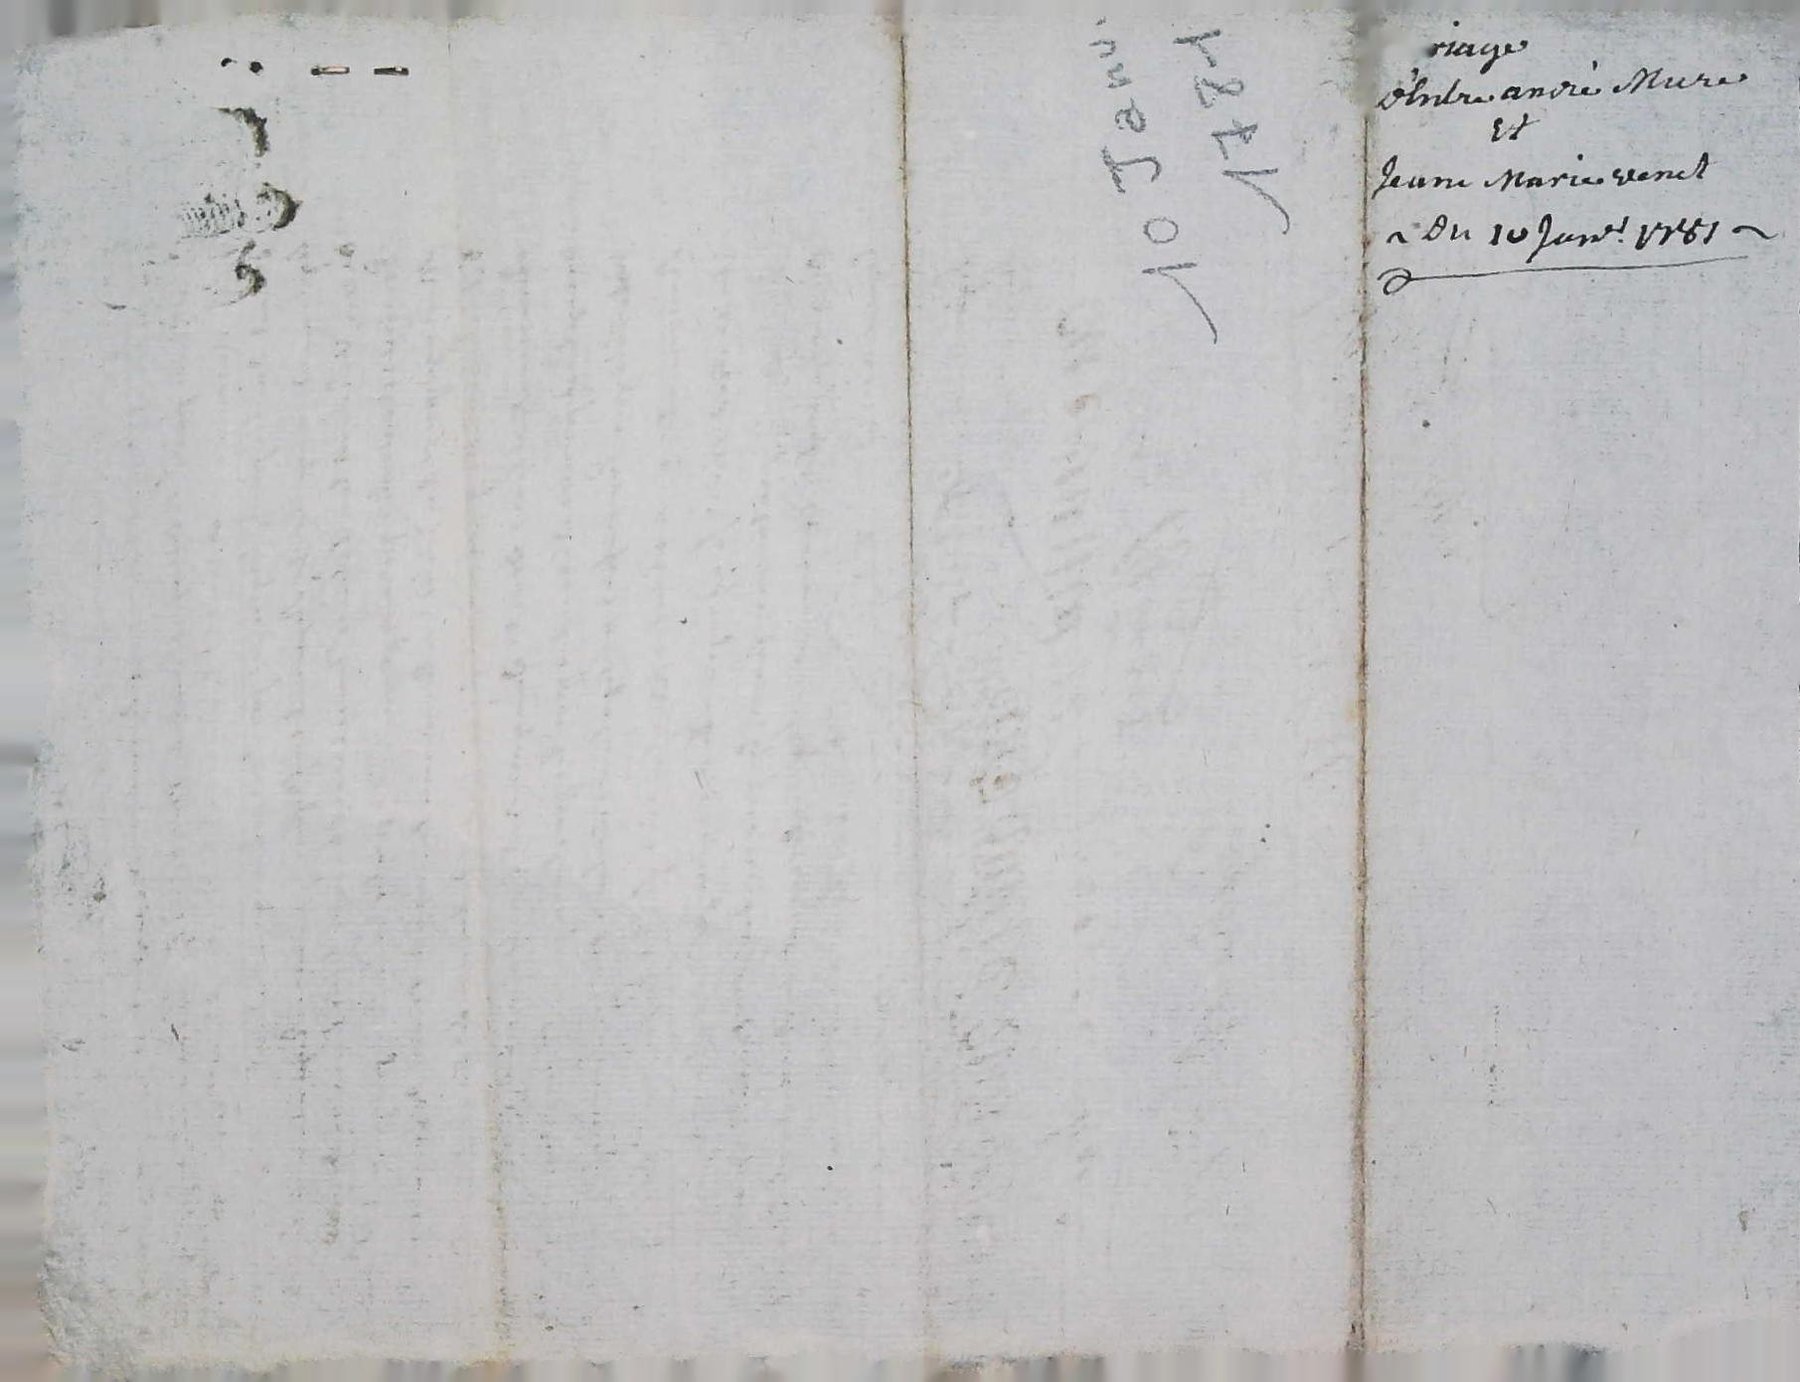 riage
d'Entre andré Mure
Et
Jeane Marie venet
~ Du 10 Janv.r 1781 ~
10 Janv.
1781